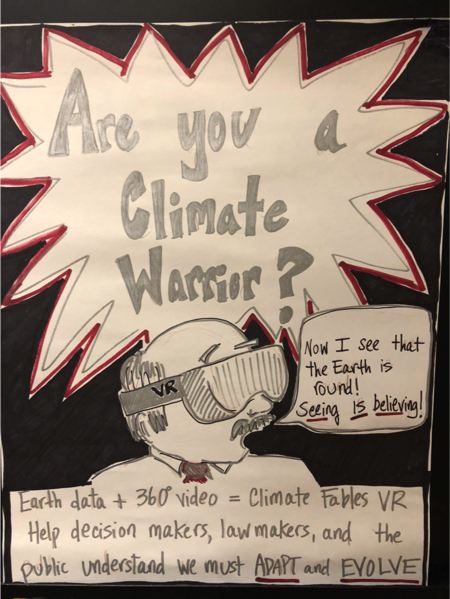 Are you a
Climate
Warrior?
Now I see that
the Earth is
round!
Seeing is believing!
VR
Earth data + 360° video = Climate Fables VR
Help decision makers, lawmakers, and the
public understand we must ADAPT and EVOLVE